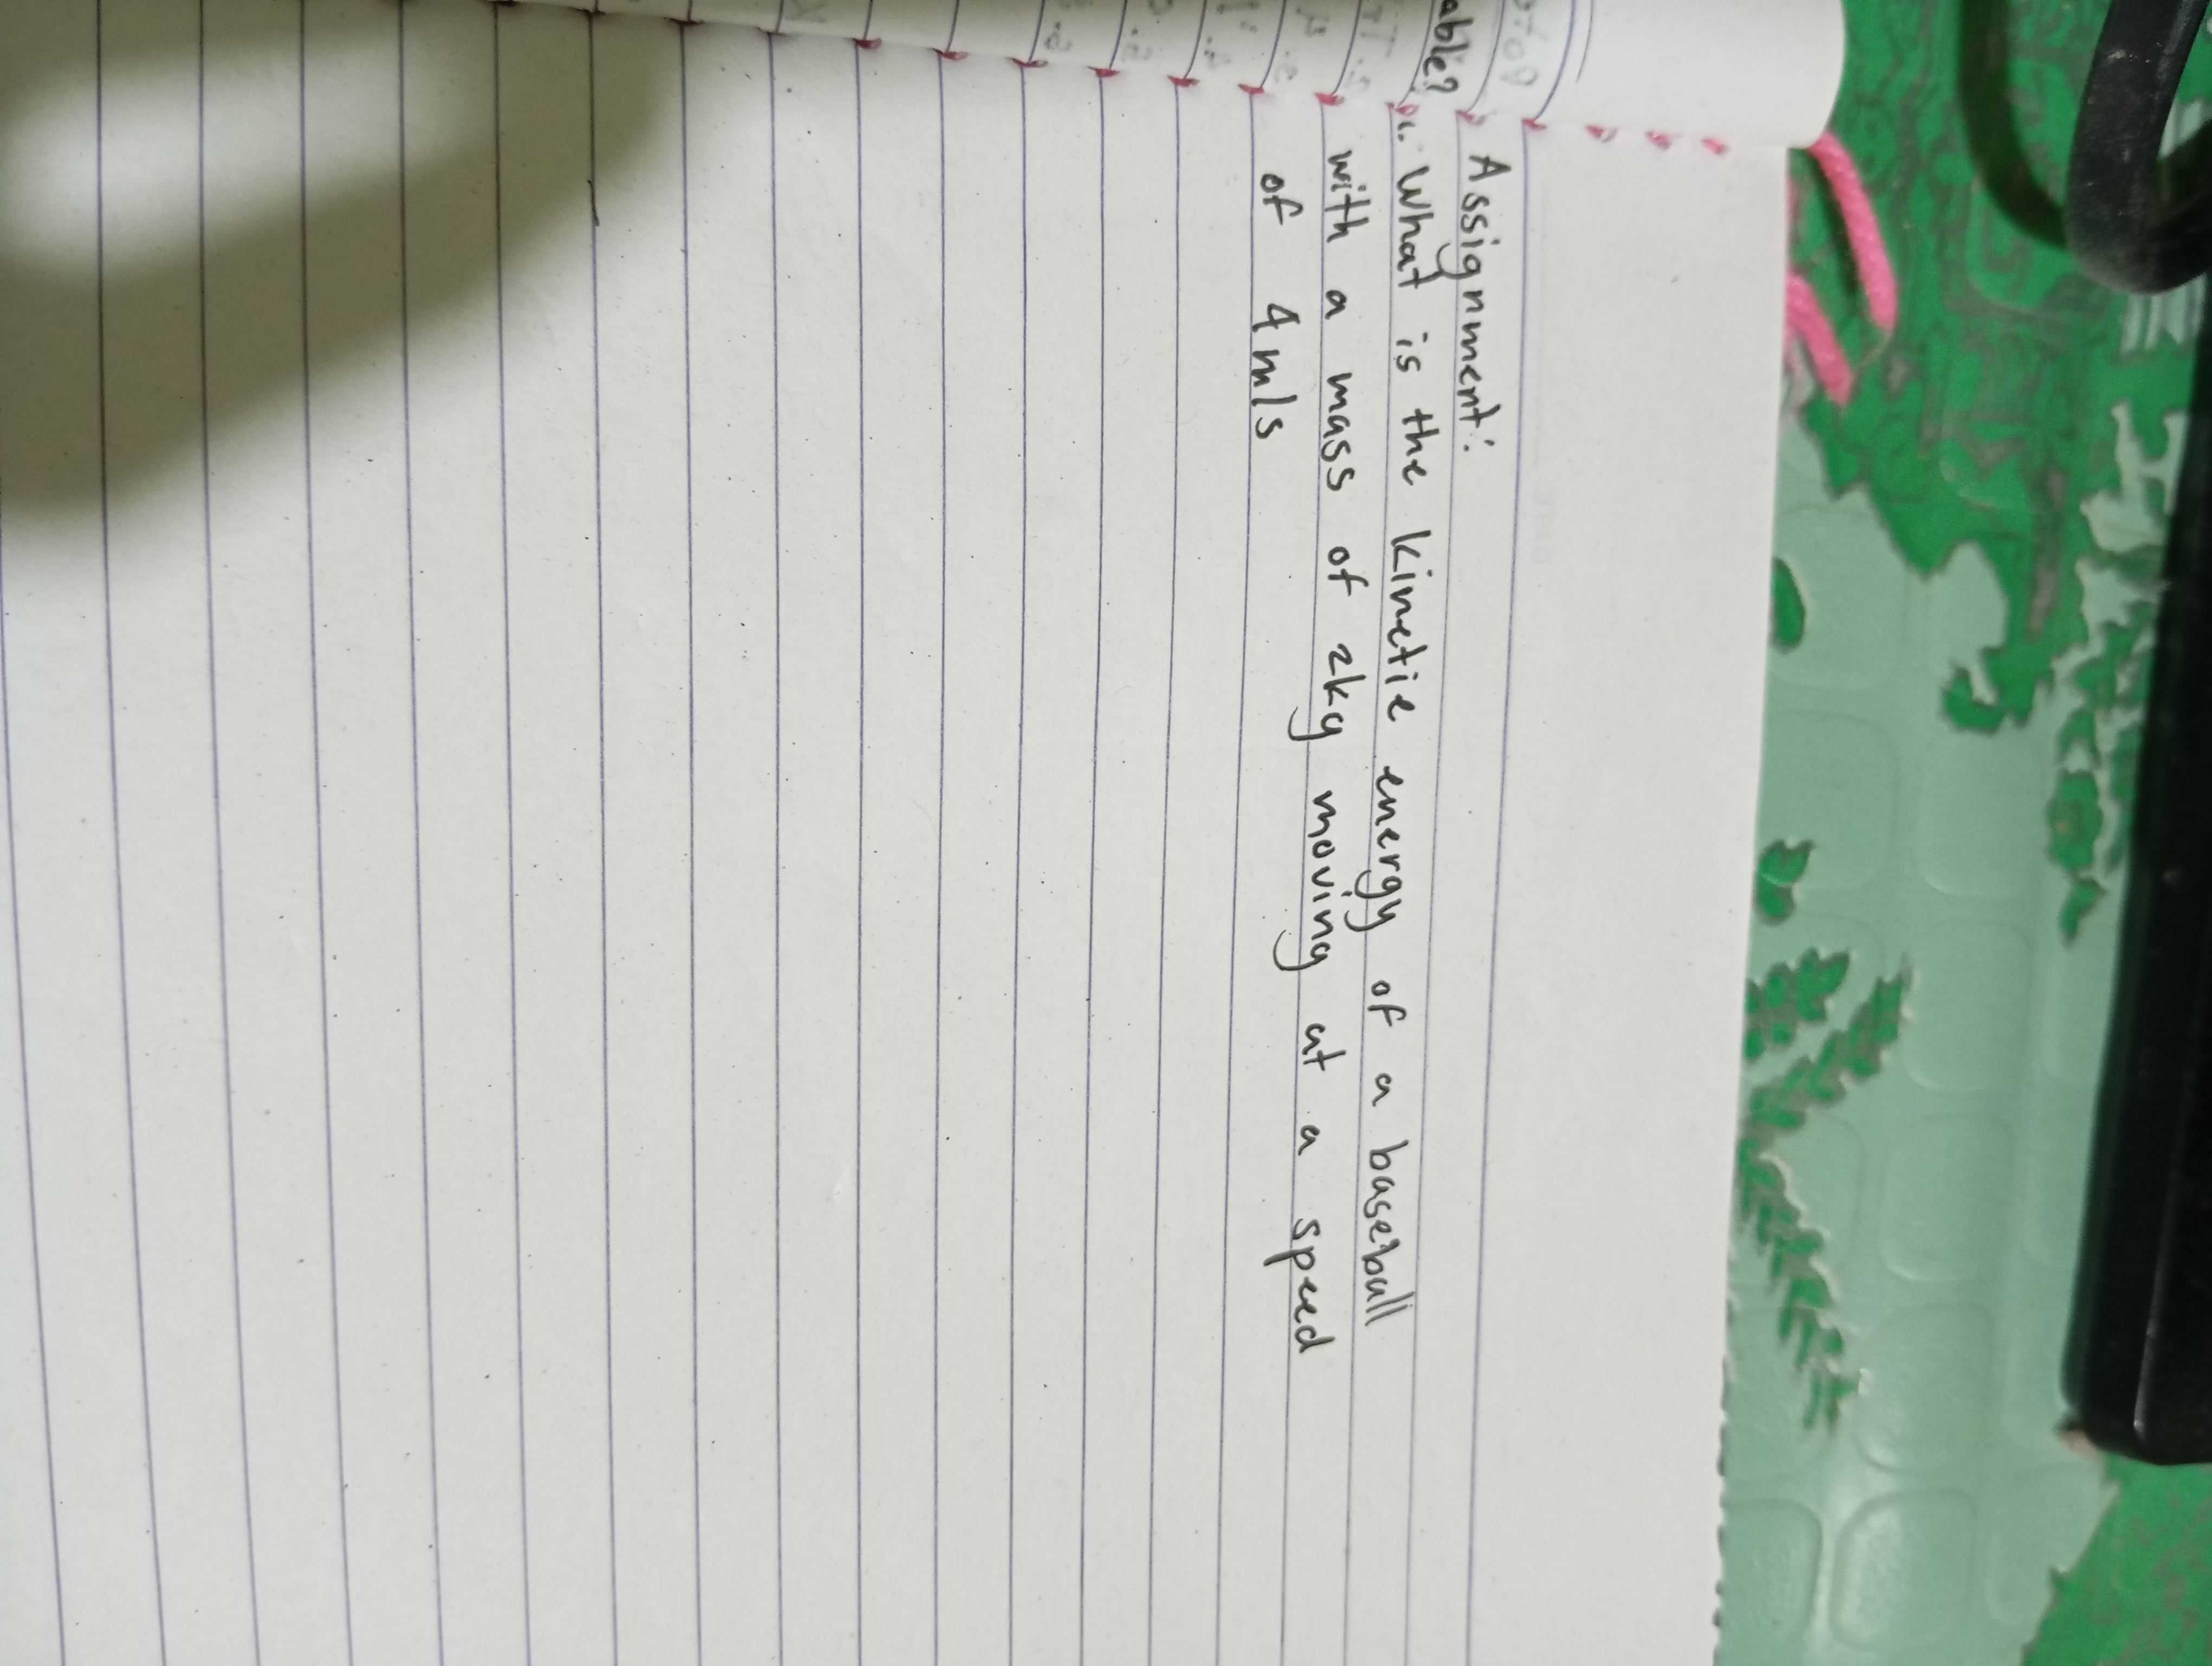 Assignment:
1. What is the kinetic energy of a baseball
with a mass of 2kg moving at a speed
of 4m/s
able?